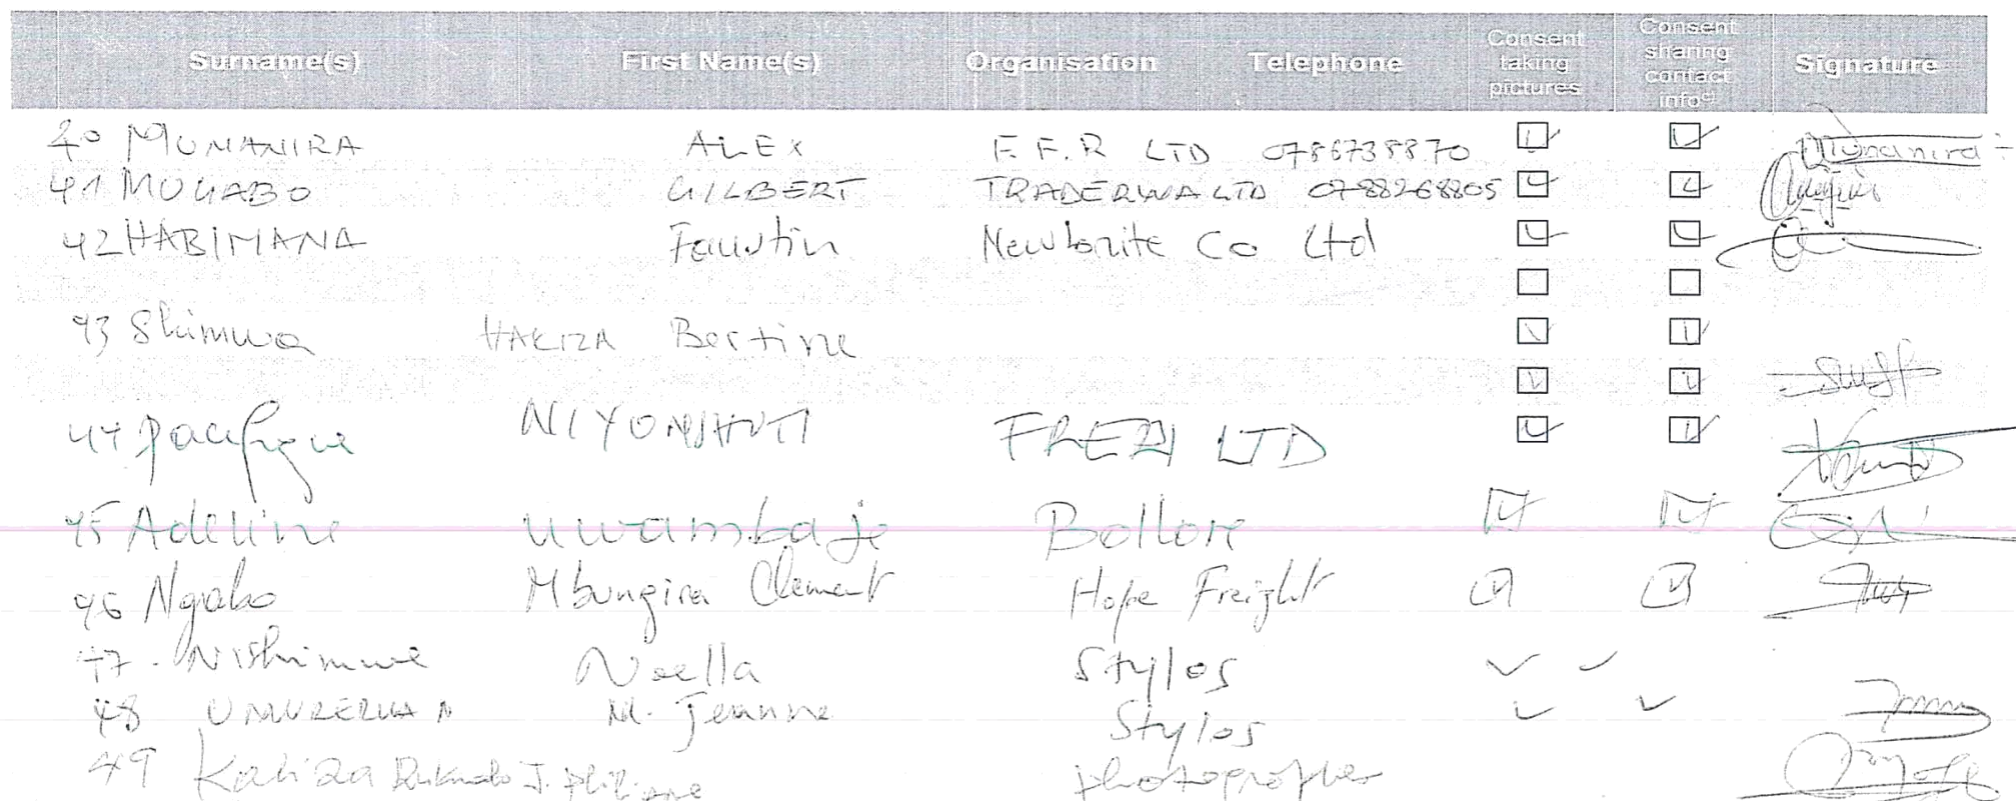 Surname(s) First Name(s) Organisation Telephone Consent taking pictures Consent sharing contact info Signature
40 MUNANIRA ALEX F.F.R LTD 0786738870
41 MUGABO GILBERT TRADERWA LTD 0788268805
42 HABIMANA Faustin Newbrite Co Ltd
43 Shimwa HAKIZA Bertine
44 Pacifique NIYONSHUTI LTD
45 Adeline Uwambaje Bollore
46 Ngabo Mbungira Clement Hope Freight
47. Nishimwe Noella Stylos
48 M. Jeanne Stylos
49 Kaliza J. photographer